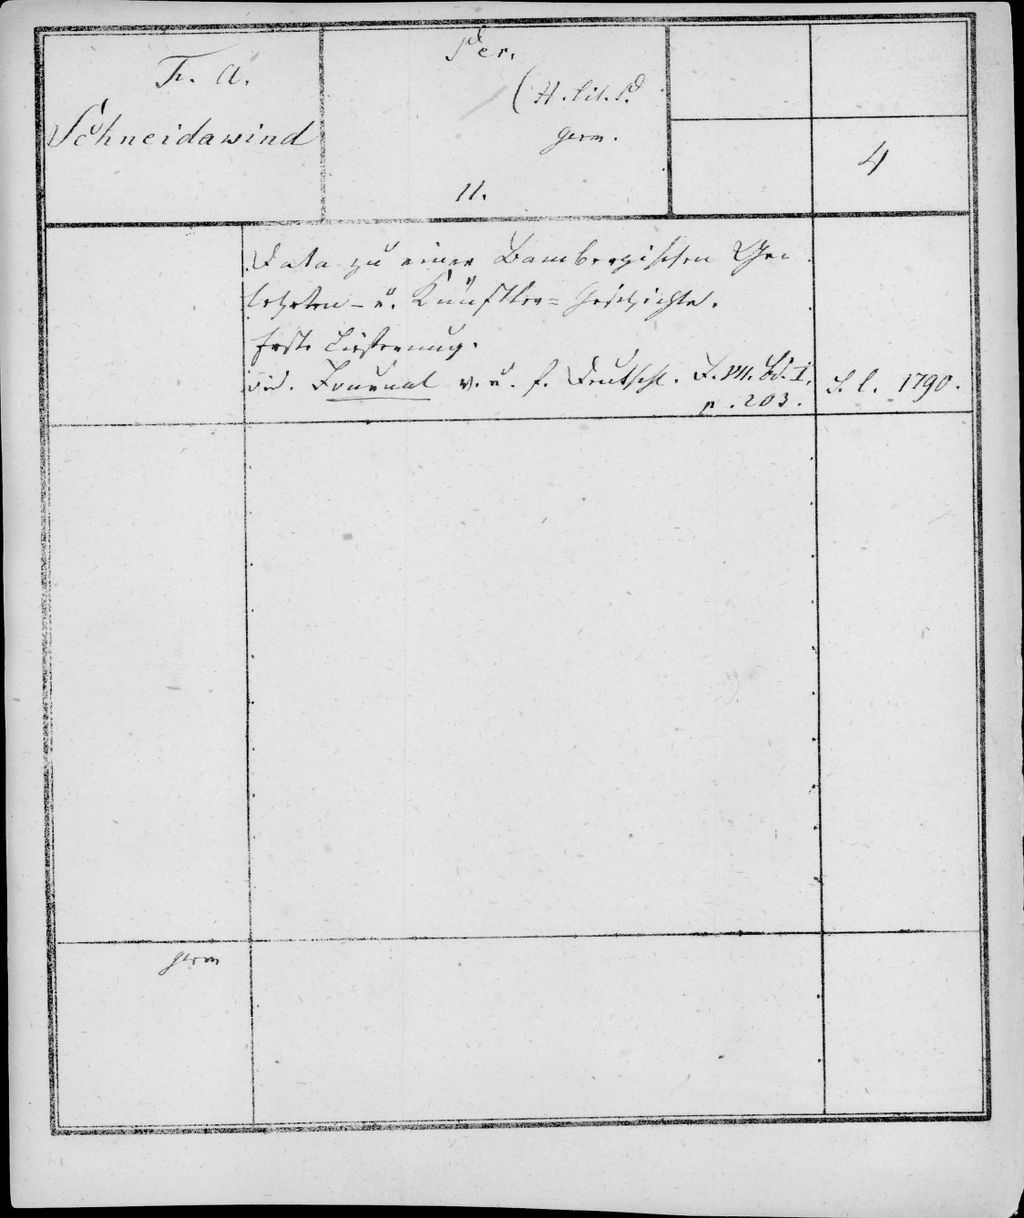 F. A.
Schneidawind
Per.
(H. lit. P.
germ.
11.
4
Data zu einer Bambergischen Ge-
lehrten- u. Künstler= Geschichte.
Erste Lieferung.
vid. Journal v. u. f. Deutschl. J. VII. Bd. I.
p. 203.
S. l. 1790.
germ